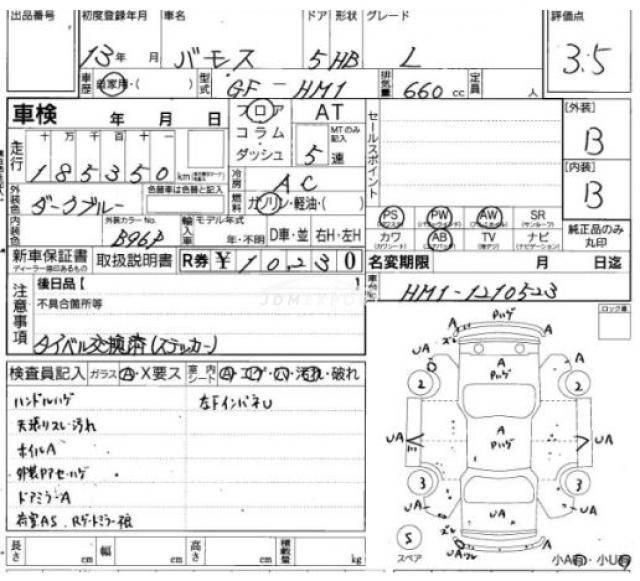 出品番号 初度登録年月 車名 ドア 形状 グレード 評価点
13年 月 バモス 5 HB L 3.5
車歴 自家用・( ) 型式 GF-HM1 排気量 660cc 定員 人
車検 年 月 日 フロア AT セールスポイント [外装]
コラム MTのみ記入 B
走行 十 万 千 百 十 一 ダッシュ 5速
185350 km 冷房 AC [内装]
外装色 ダークブルー 色替車は色替と記入 燃料 ガソリン・軽油・( ) B
内装色 外装カラーNo. B96P 輸入車 モデル年式 年・不明 D車・並 右H・左H
PS PW AW SR 純正品のみ丸印
カワ AB TV ナビ
新車保証書 取扱説明書 R券 ¥10,230 名変期限 月 日迄
ディーラー捺印あるもの
注意事項 後日品[ ] 車台No. HM1-1210523
不具合箇所等 ロック車
タイベル交換済(ステッカー)
検査員記入 ガラス A・X要ス 室内シート A・コゲ・穴・汚れ・破れ
ハンドルハゲ 左FインパネU
天張りスレ・汚れ
ホイルA
ドアミラーA
A ハゲ
A ハゲ
2 2
UA A ハゲ UA
3 3
A
UA
S
スペア
小A有・小U有
長さ cm 幅 cm 高さ cm 積載量 kg